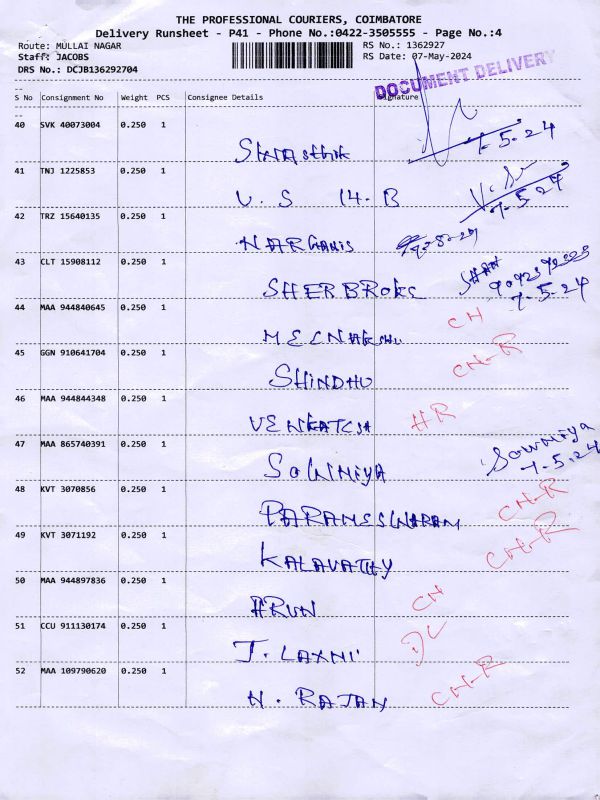 THE PROFESSIONAL COURIERS, COIMBATORE
Delivery Runsheet - P41 - Phone No.:0422-3505555 - Page No.:4
Route: MULLAI NAGAR RS No.: 1362927
Staff: JACOBS RS Date: 07-May-2024
DRS No.: DCJB136292704
DOCUMENT DELIVERY
S No Consignment No Weight PCS Consignee Details Signature
40 SVK 40073004 0.250 1
7.5.24
41 TNJ 1225853 0.250 1
V.S 14-B 7.5.24
42 TRZ 15640135 0.250 1
43 CLT 15908112 0.250 1
SHERBROKE 7-5.24
44 MAA 944840645 0.250 1 CH
45 GGN 910641704 0.250 1 CH-R
SHINDHU
46 MAA 944844348 0.250 1 HR
VENKATESH
47 MAA 865740391 0.250 1 Sowmiya
SOWMIYA 7-5.24
48 KVT 3070856 0.250 1 CH-R
PARAMESWARAM
49 KVT 3071192 0.250 1 CH-R
KALAVATHY
50 MAA 944897836 0.250 1 CH
ARUN
51 CCU 911130174 0.250 1 DL
J. LAXMI
52 MAA 109790620 0.250 1 CH-R
N. RAJAN